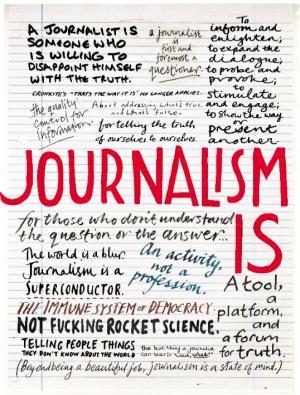 A JOURNALIST IS
SOMEONE WHO
IS WILLING TO
DISAPPOINT HIMSELF
WITH THE TRUTH.
a journalist
is
first and
foremost a
questioner.
To
inform and
enlighten;
to expand the
dialogue;
to probe and
provoke;
to
stimulate
and engage;
to show the way
or
present
another
CRONKITE'S "THAT'S THE WAY IT IS" NO LONGER APPLIES.
the quality
control for
information.
About addressing what's true
and what's false.
for telling the truth
of ourselves to ourselves
JOURNALISM
IS
for those who don't understand
the question or the answer...
The world is a blur.
Journalism is a
SUPERCONDUCTOR.
An activity,
not a
profession.
A tool,
a
platform,
and
a forum
for truth.
THE IMMUNE SYSTEM OF DEMOCRACY.
NOT FUCKING ROCKET SCIENCE.
TELLING PEOPLE THINGS
THEY DON'T KNOW ABOUT THE WORLD
the best thing a journalist
can learn is
(Beyond being a beautiful job, journalism is a state of mind.)